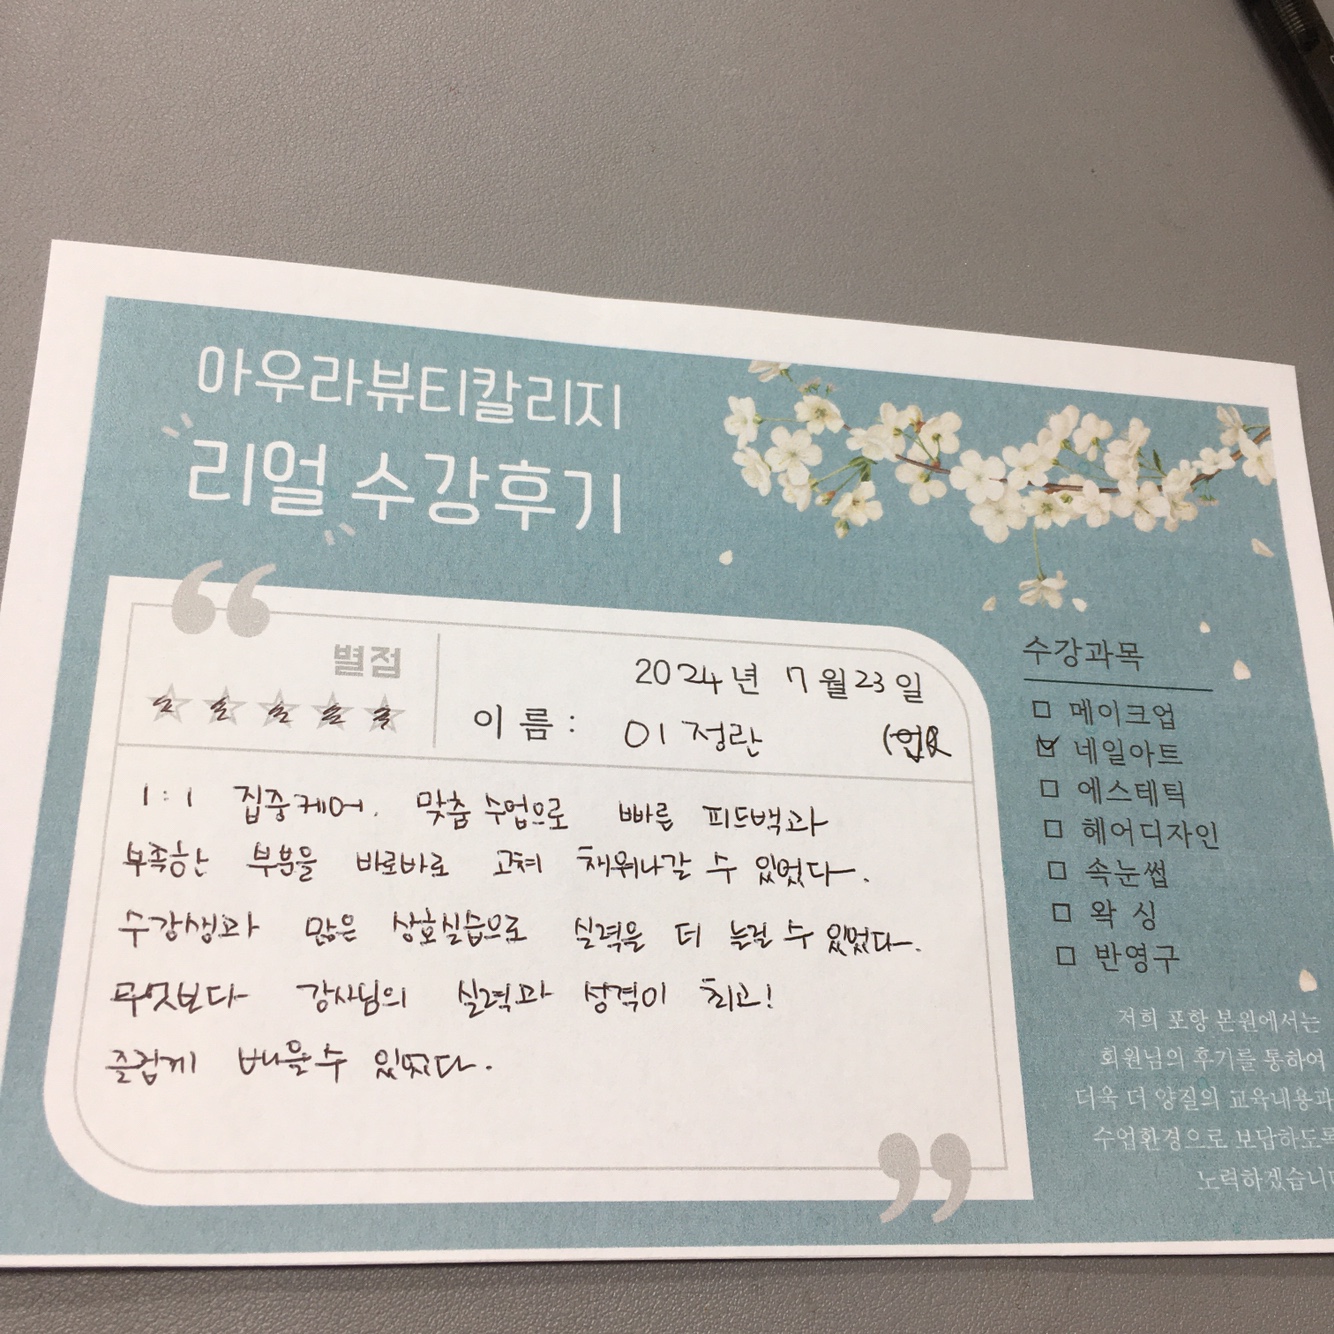 아우라뷰티칼리지
리얼 수강후기
별점
2024년 7월 23일
이름: 이정란
1:1 집중케어. 맞춤 수업으로 빠른 피드백과
부족한 부분을 바로바로 고쳐 채워나갈 수 있었다.
수강생과 많은 상호실습으로 실력을 더 늘릴 수 있었다.
무엇보다 강사님의 실력과 성격이 최고!
즐겁게 배울 수 있었다.
수강과목
메이크업
네일아트
에스테틱
헤어디자인
속눈썹
왁싱
반영구
저희 포항 본원에서는
회원님의 후기를 통하여
더욱 더 양질의 교육내용과
수업환경으로 보답하도록
노력하겠습니다